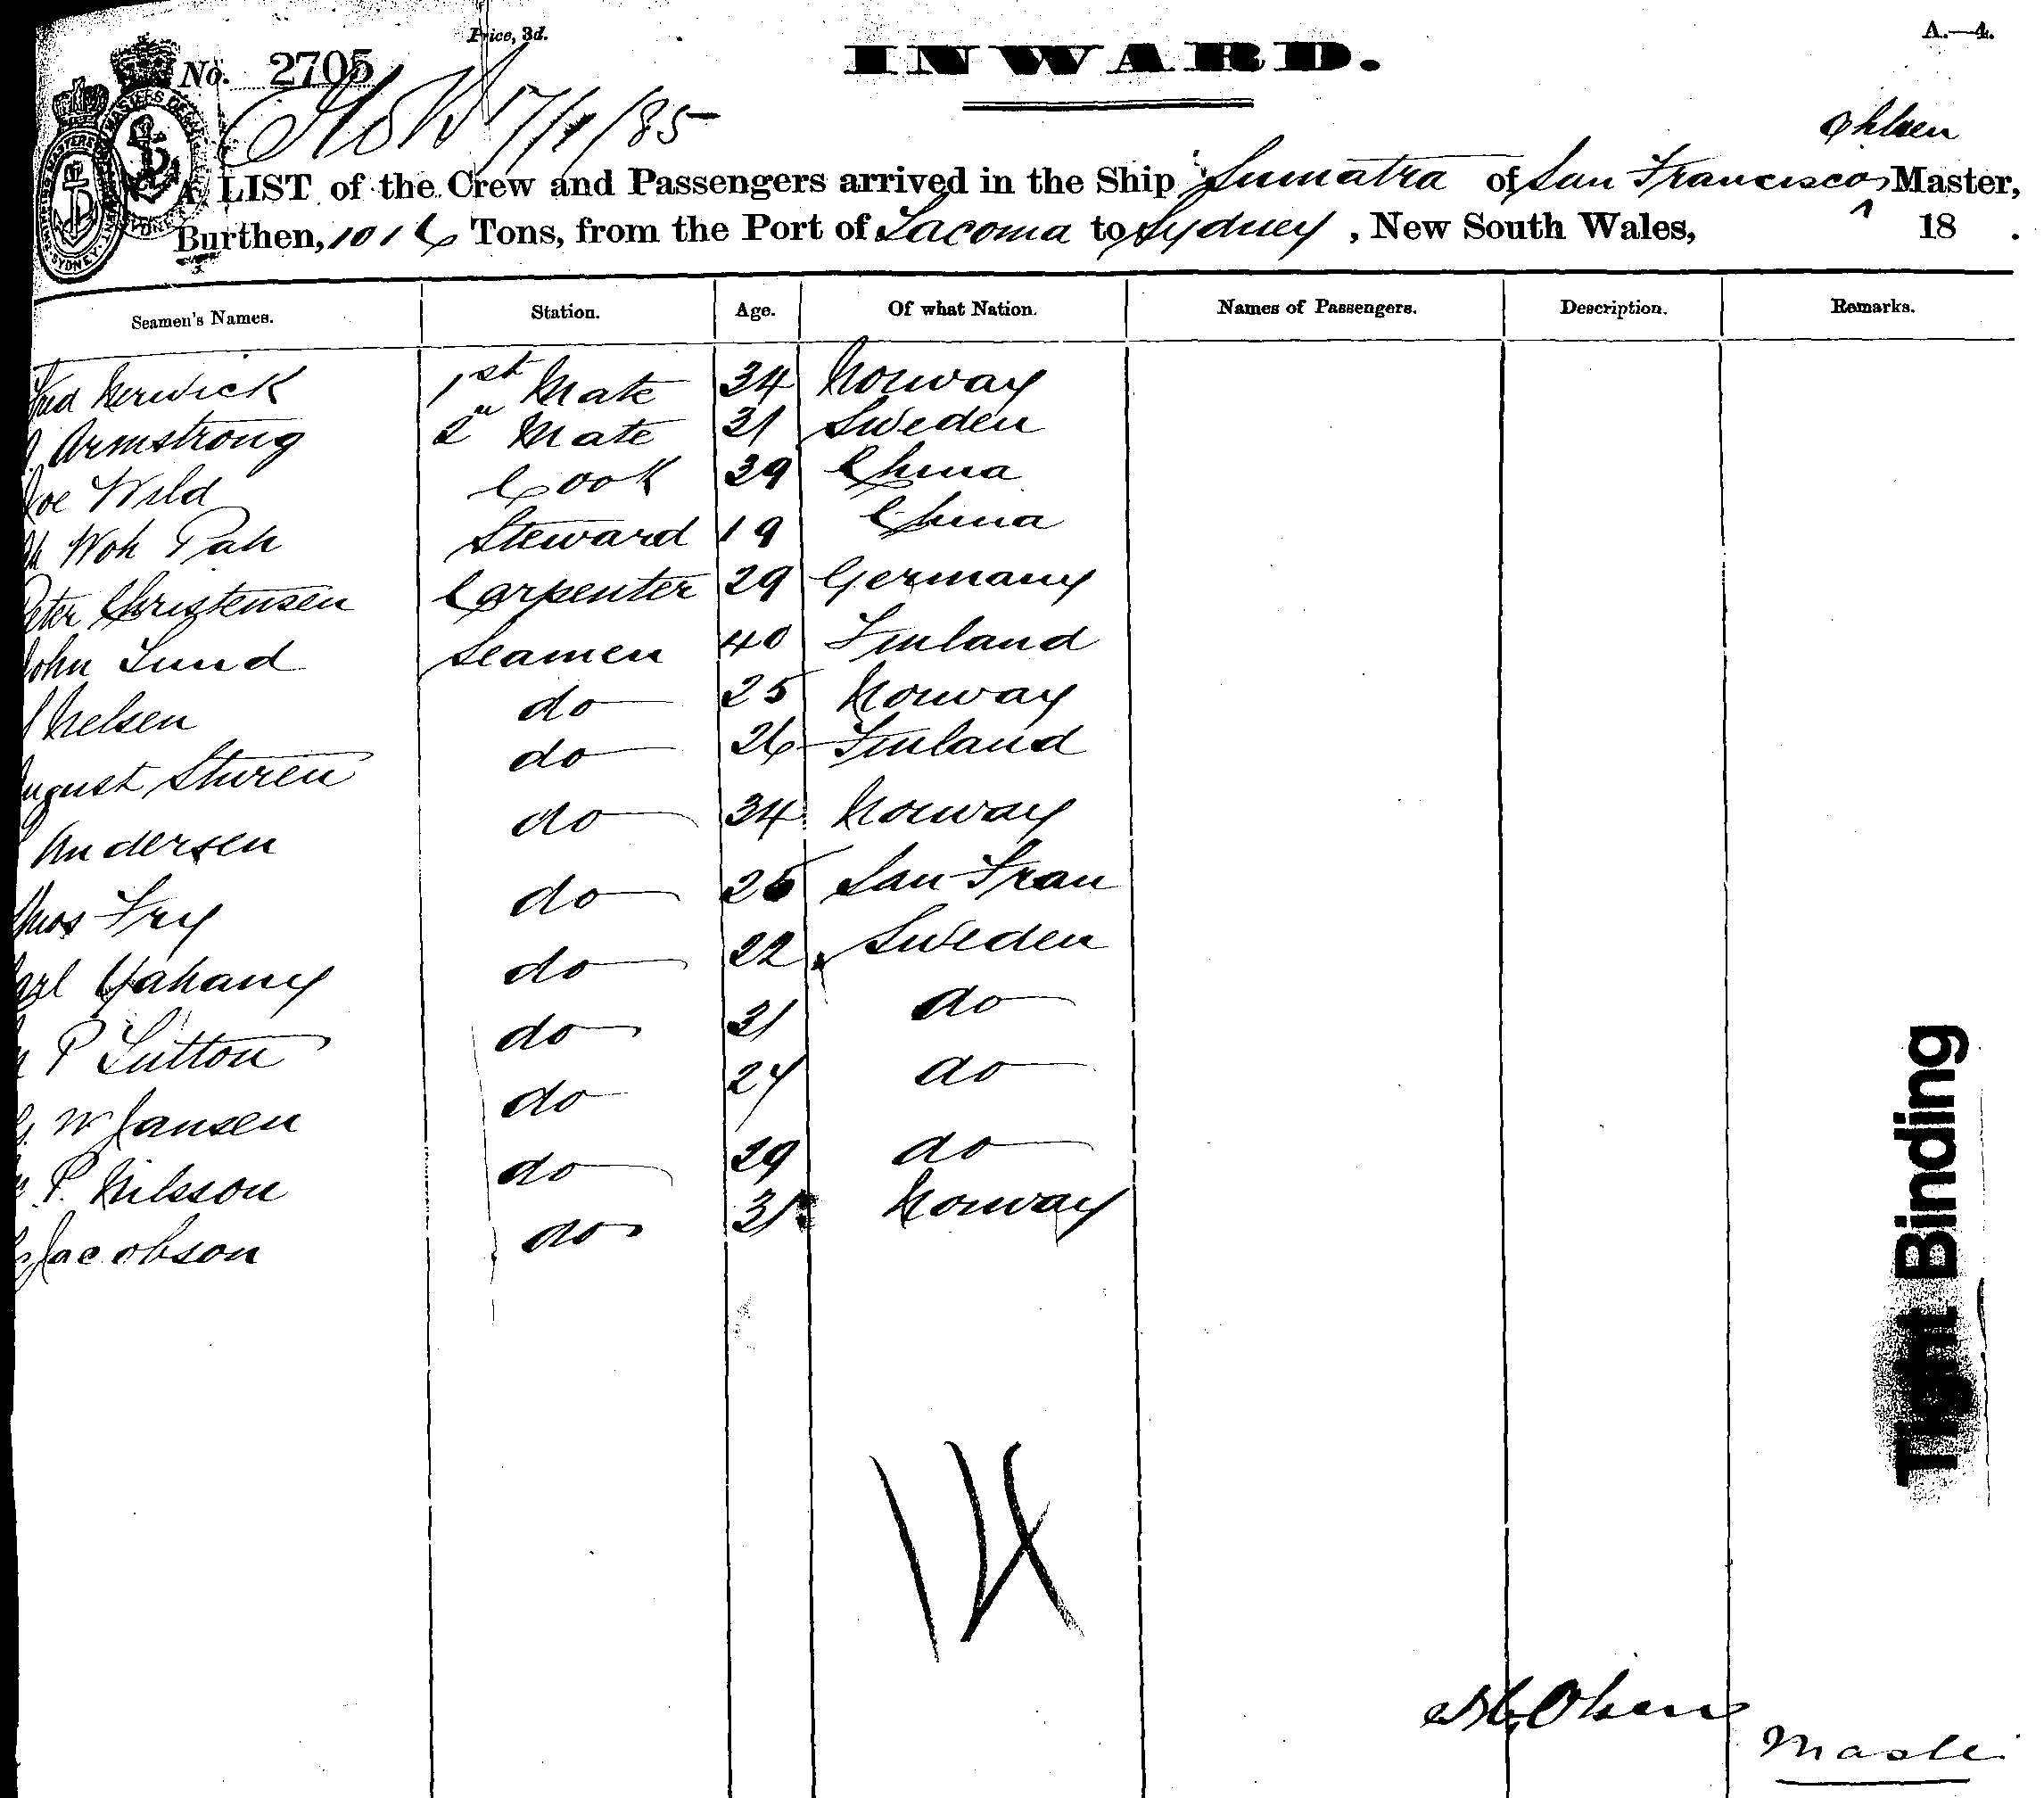 Price, 3d.
A.—4.
No. 2705
INWARD.
17/11/85
Ohlsen
A LIST of the Crew and Passengers arrived in the Ship Sumatra of San Francisco, Master,
Burthen, 1016 Tons, from the Port of Tacoma to Sydney, New South Wales, 18 .
Seamen's Names. Station. Age. Of what Nation. Names of Passengers. Description. Remarks.
Fred Nerwick 1st Mate 34 Norway
Armstrong 2n Mate 31 Sweden
Joe Wild Cook 39 China
Ah Woh Pah Steward 19 China
Peter Christensen Carpenter 29 Germany
John Lund Seamen 40 Finland
Nelsen do 25 Norway
August Sturen do 26 Finland
Andersen do 34 Norway
Thos Fry do 25 San Fran
Carl Yahany do 22 Sweden
P Sutton do 31 do
W Jansen do 24 do
P. Nilsson do 29 do
Jacobson do 31 Norway
14
Tight Binding
Master